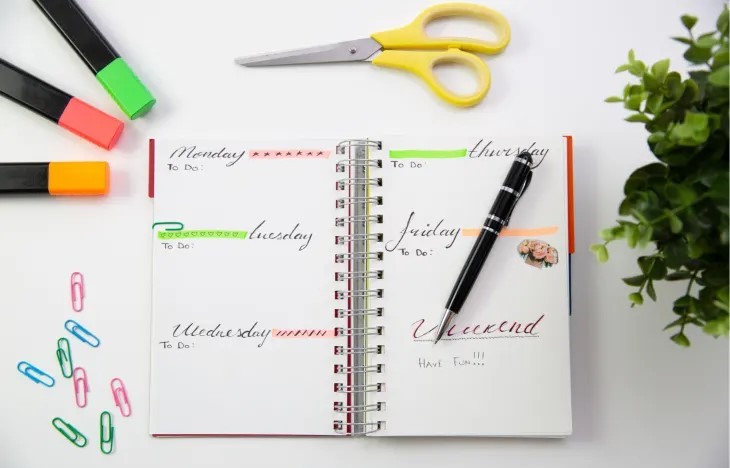 Monday
To Do:
tuesday
To Do:
Wednesday
To Do:
thursday
To Do:
friday
To Do:
Weekend
Have Fun!!!